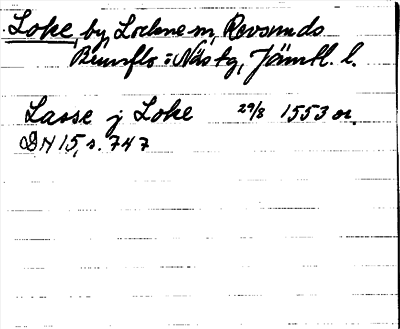 Loke, by, Lockne sn, Revsunds
Brunflo o Näs tg, Jämtl. l.
Lasse j Loke 29/8 1553 or.
DN 15, s. 747